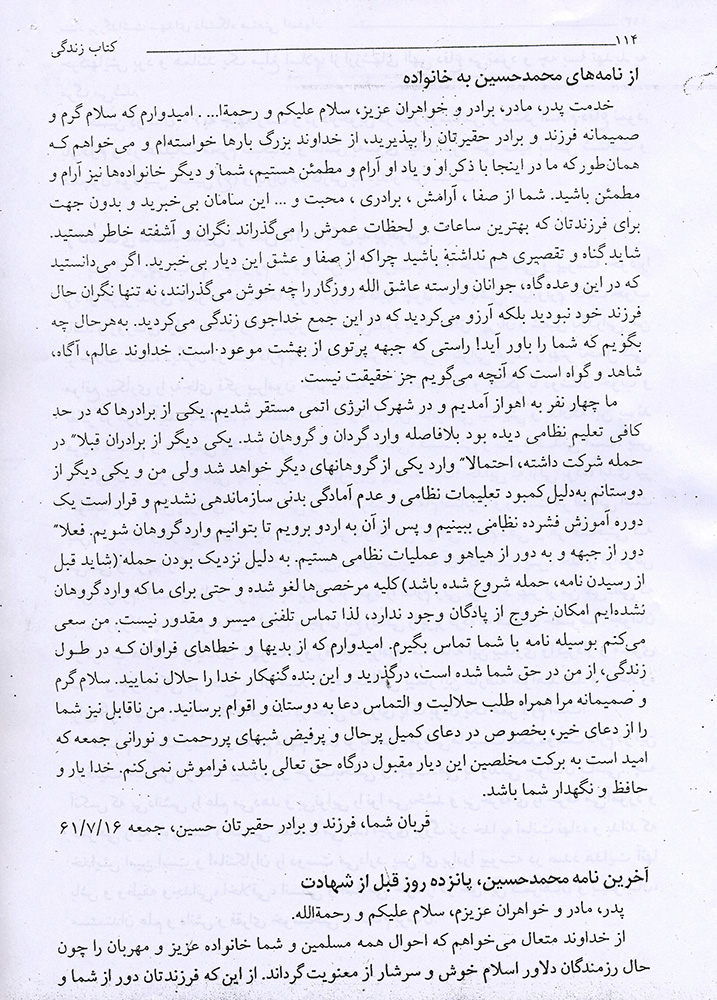 ۱۱۴ کتاب زندگی
از نامه‌های محمدحسین به خانواده
خدمت پدر، مادر، برادر و خواهران عزیز، سلام علیکم و رحمةا... . امیدوارم که سلام گرم و
صمیمانه فرزند و برادر حقیرتان را بپذیرید، از خداوند بزرگ بارها خواسته‌ام و می‌خواهم کـه
همان‌طور که ما در اینجا با ذکر او و یاد او آرام و مطمئن هستیم، شما و دیگر خانواده‌ها نیز آرام و
مطمئن باشید. شما از صفا ، آرامش ، برادری ، محبت و ... این سامان بی‌خبرید و بدون جهت
برای فرزندتان که بهترین ساعات و لحظات عمرش را می‌گذراند نگران و آشفته خاطر هستید.
شاید گناه و تقصیری هم نداشته باشید چراکه از صفا و عشق این دیار بی‌خبرید. اگر می‌دانستید
که در این وعده‌گاه، جوانان وارسته عاشق الله روزگار را چه خوش می‌گذرانند، نه تنها نگران حال
فرزند خود نبودید بلکه آرزو می‌کردید که در این جمع خداجوی زندگی می‌کردید. به‌هرحال چه
بگویم که شما را باور آید! راستی که جبهه پرتوی از بهشت موعود است. خداوند عالم، آگاه،
شاهد و گواه است که آنچه می‌گویم جز حقیقت نیست.
ما چهار نفر به اهواز آمدیم و در شهرک انرژی اتمی مستقر شدیم. یکی از برادرها که در حد
کافی تعلیم نظامی دیده بود بلافاصله وارد گردان و گروهان شد. یکی دیگر از برادران قبلا" در
حمله شرکت داشته، احتمالا" وارد یکی از گروهانهای دیگر خواهد شد ولی من و یکی دیگر از
دوستانم به‌دلیل کمبود تعلیمات نظامی و عدم آمادگی بدنی سازماندهی نشدیم و قرار است یک
دوره آموزش فشرده نظامی ببینیم و پس از آن به اردو برویم تا بتوانیم وارد گروهان شویم. فعلا"
دور از جبهه و به دور از هیاهو و عملیات نظامی هستیم. به دلیل نزدیک بودن حمله (شاید قبل
از رسیدن نامه، حمله شروع شده باشد) کلیه مرخصی‌ها لغو شده و حتی برای ما که وارد گروهان
نشده‌ایم امکان خروج از پادگان وجود ندارد، لذا تماس تلفنی میسر و مقدور نیست. من سعی
می‌کنم بوسیله نامه با شما تماس بگیرم. امیدوارم که از بدیها و خطاهای فراوان کـه در طـول
زندگی، از من در حق شما شده است، درگذرید و این بنده گنهکار خدا را حلال نمایید. سلام گرم
و صمیمانه مرا همراه طلب حلالیت و التماس دعا به دوستان و اقوام برسانید. من ناقابل نیز شما
را از دعای خیر، بخصوص در دعای کمیل پرحال و پرفیض شبهای پررحمت و نورانی جمعه که
امید است به برکت مخلصین این دیار مقبول درگاه حق تعالی باشد، فراموش نمی‌کنم. خدا یار و
حافظ و نگهدار شما باشد.
قربان شما، فرزند و برادر حقیرتان حسین، جمعه ۶۱/۷/۱۶
آخرین نامه محمدحسین، پانزده روز قبل از شهادت
پدر، مادر و خواهران عزیزم، سلام علیکم و رحمةالله.
از خداوند متعال می‌خواهم که احوال همه مسلمین و شما خانواده عزیز و مهربان را چون
حال رزمندگان دلاور اسلام خوش و سرشار از معنویت گرداند. از این که فرزندتان دور از شما و